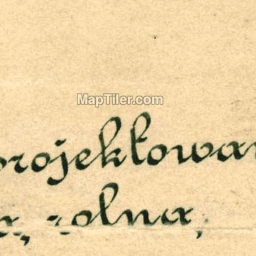 MapTiler.com
projektowan
rolna,